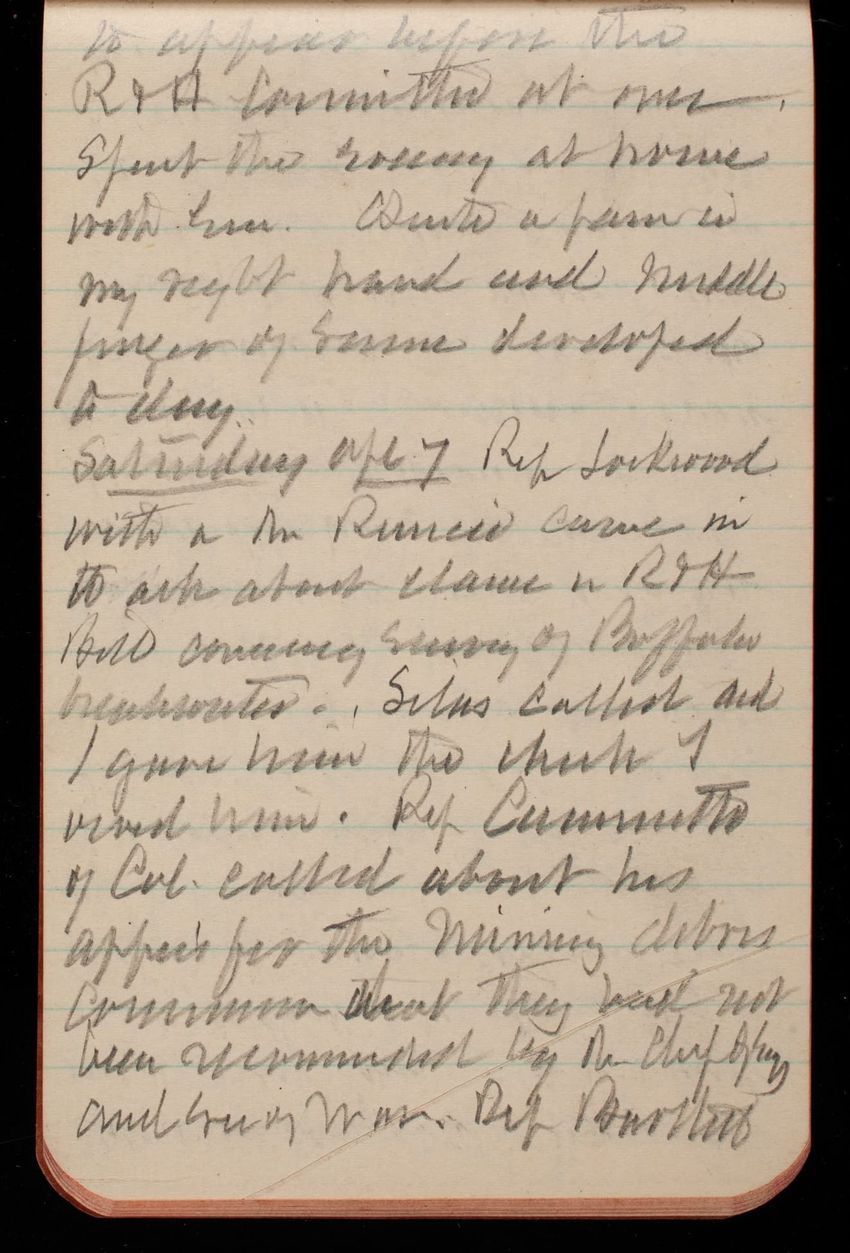 to appear before the
R & H Committee at once.
Spent the evening at home
with Em. Quite a pain in
my right hand and middle
finger of same developed
to day.
Saturday Apl 7 Rep Lockwood
with a Mr came in
to ask about clause in R & H
Bill covering survey of Buffalo
breakwater. Silas called and
I gave him the check I
owed him. Rep Cumminetti
of Cal. called about his
app for the Mining debris
Common that they had not
been recommended by the Chf of Engs
and Sec of War. Rep Bartlett